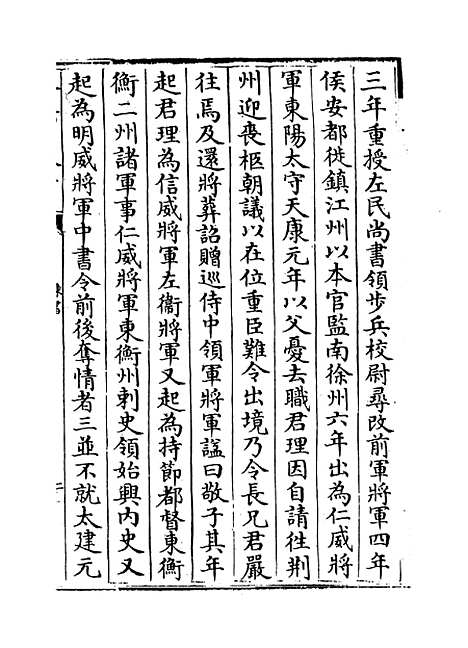 三年重授左民尚書領步兵校尉尋改前軍將軍四年
侯安都徙鎮江州以本官監南徐州六年出為仁威將
軍東陽太守天康元年以父憂去職君理因自請往荆
州迎喪柩朝議以在位重臣難令出境乃令長兄君嚴
往焉及還將葬詔贈巡侍中領軍將軍諡曰敬子其年
起君理為信威將軍左衞將軍又起為持節都督東衡
衡二州諸軍事仁威將軍東衡州刺史領始興内史又
起為明威將軍中書令前後奪情者三並不就太建元